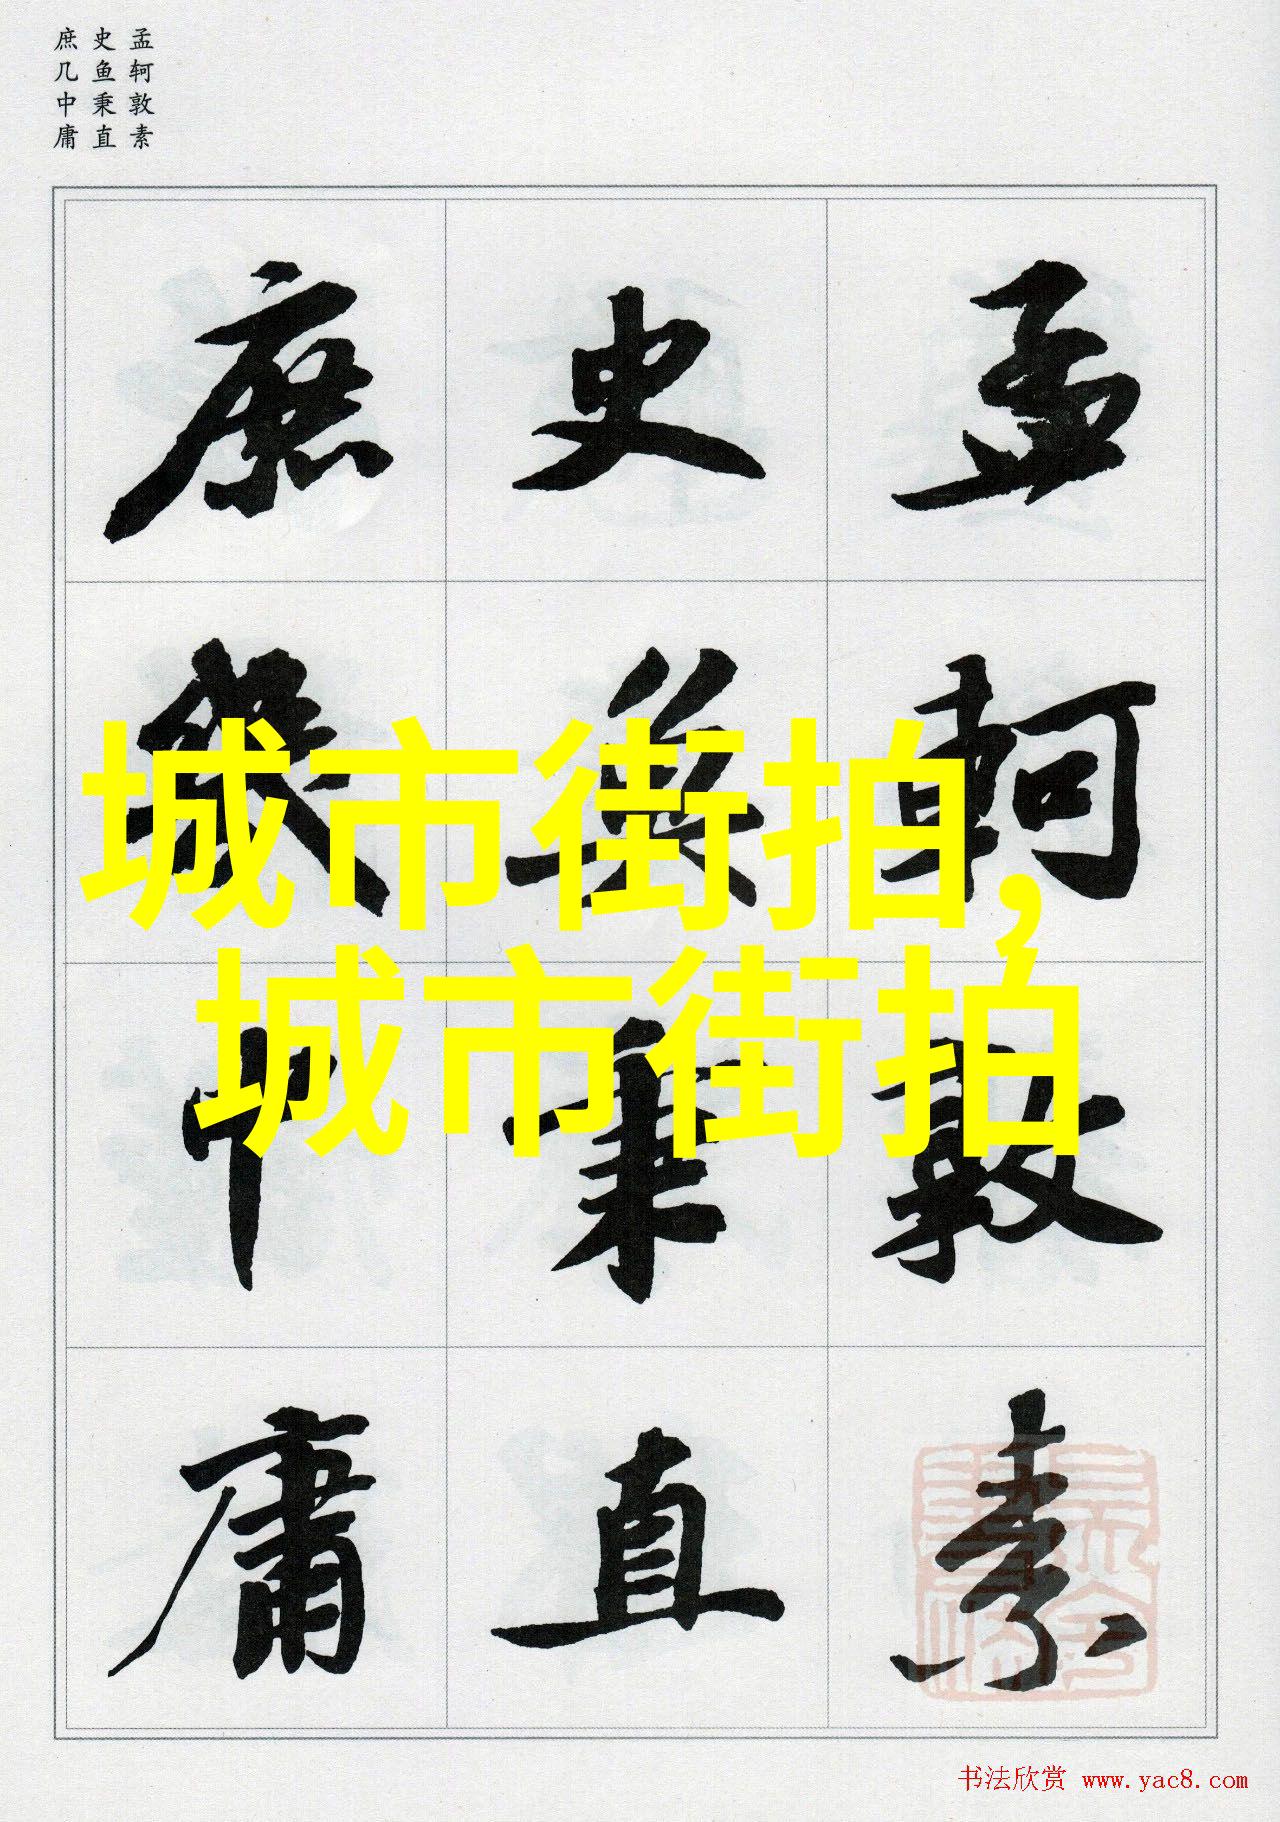 孟轲敦素
史鱼秉直
庶几中庸
孟軻敦素
史魚秉直
庶幾中庸
城市街拍,
城市街拍
书法欣赏 www.yac8.com